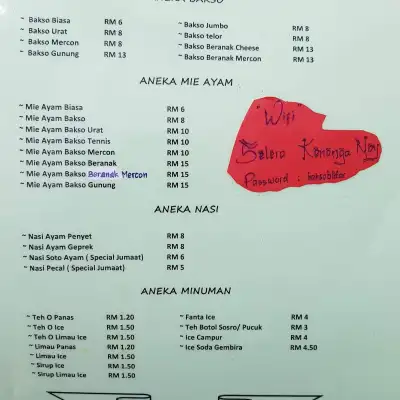 ANEKA BAKSO
~ Bakso Biasa RM 6
~ Bakso Urat RM 8
~ Bakso Mercon RM 8
~ Bakso Gunung RM 13
~ Bakso Jumbo RM 8
~ Bakso telor RM 8
~ Bakso Beranak Cheese RM 13
~ Bakso Beranak Mercon RM 13
ANEKA MIE AYAM
~ Mie Ayam Biasa RM 6
~ Mie Ayam Bakso RM 8
~ Mie Ayam Bakso Urat RM 10
~ Mie Ayam Bakso Tennis RM 10
~ Mie Ayam Bakso Mercon RM 10
~ Mie Ayam Bakso Beranak RM 15
~ Mie Ayam Bakso Beranak Mercon RM 15
~ Mie Ayam Bakso Gunung RM 15
"Wifi"
Selera Kenanga
Password :
ANEKA NASI
~ Nasi Ayam Penyet RM 8
~ Nasi Ayam Geprek RM 8
~ Nasi Soto Ayam ( Special Jumaat) RM 6
~ Nasi Pecal ( Special Jumaat) RM 5
ANEKA MINUMAN
~ Teh O Panas RM 1.20
~ Teh O Ice RM 1.50
~ Teh O Limau Ice RM 1.50
~ Limau Panas RM 1.20
~ Limau Ice RM 1.50
~ Sirup Ice RM 1.50
~ Sirup Limau Ice RM 1.50
~ Fanta Ice RM 4
~ Teh Botol Sosro/ Pucuk RM 3
~ Ice Campur RM 4
~ Ice Soda Gembira RM 4.50